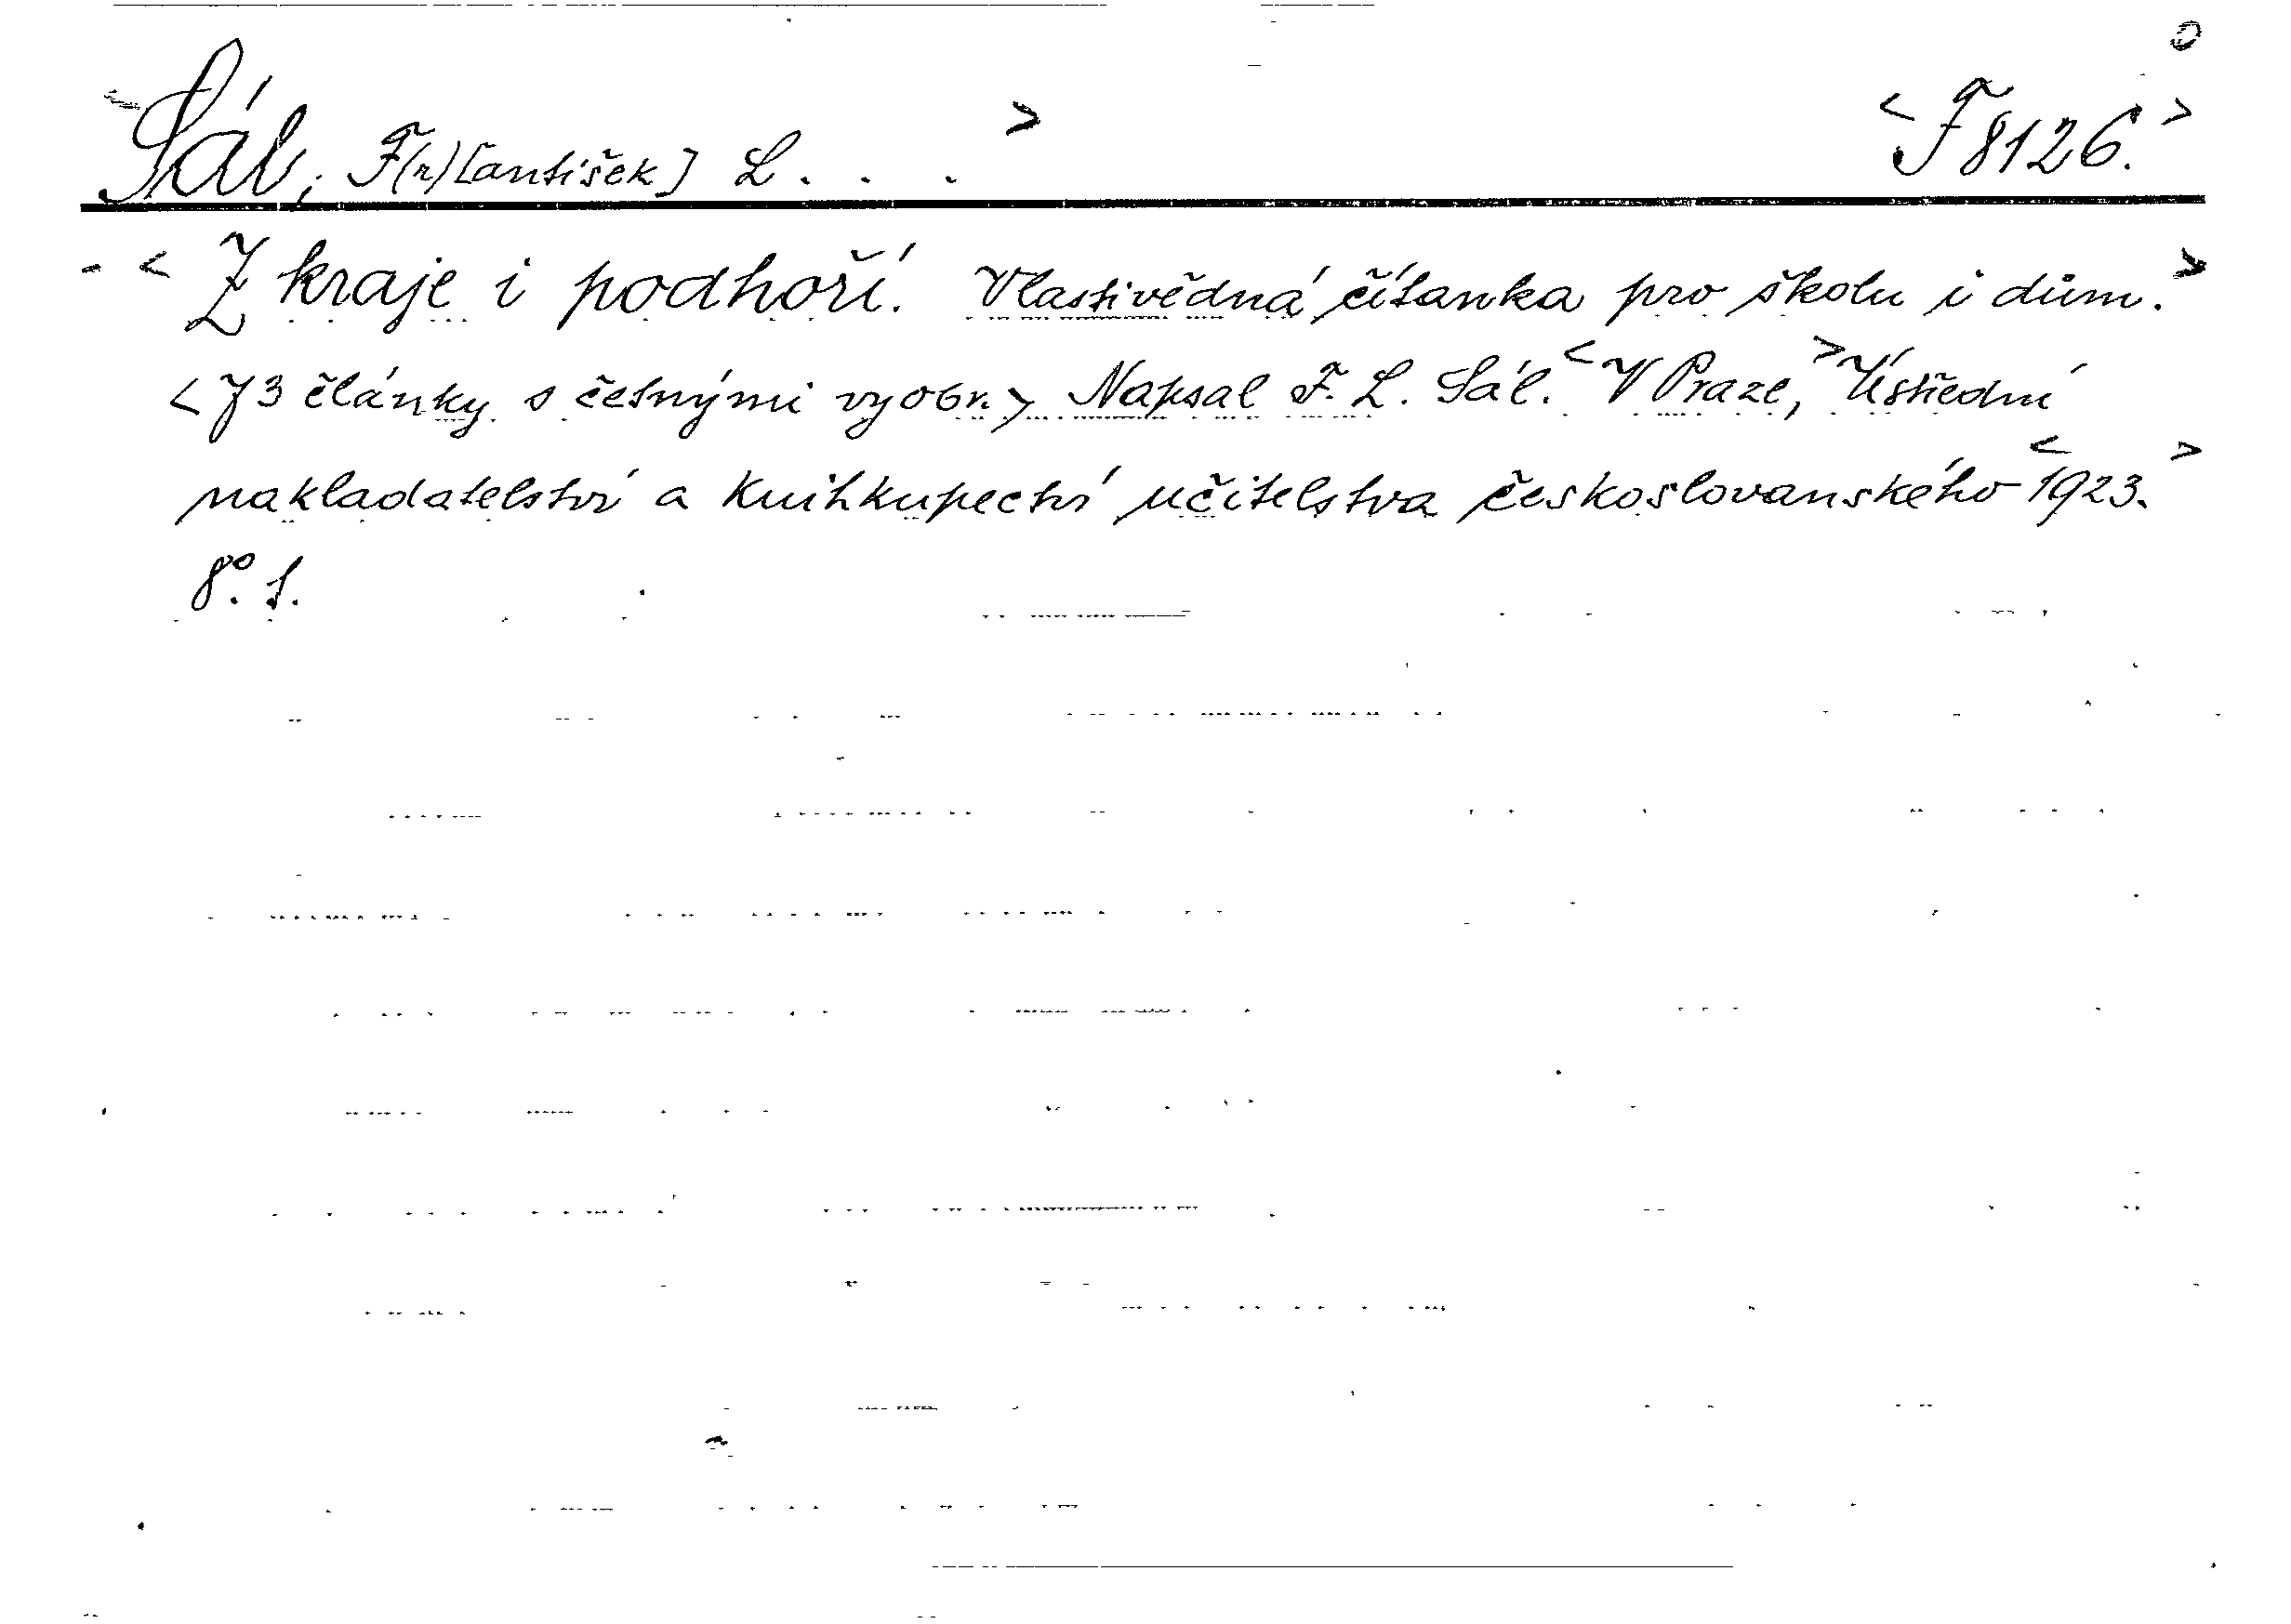 Sál, F(r)[antišek] L. . . > < F 8126. >
- < Z kraje i podhoří. Vlastivědná čítanka pro školu i dům. >
< 73 články s četnými vyobr. > Napsal F. L. Sál. < V Praze, > Ústřední
nakladatelství a knihkupectví učitelstva českoslovanského < 1923. >
8°. S.